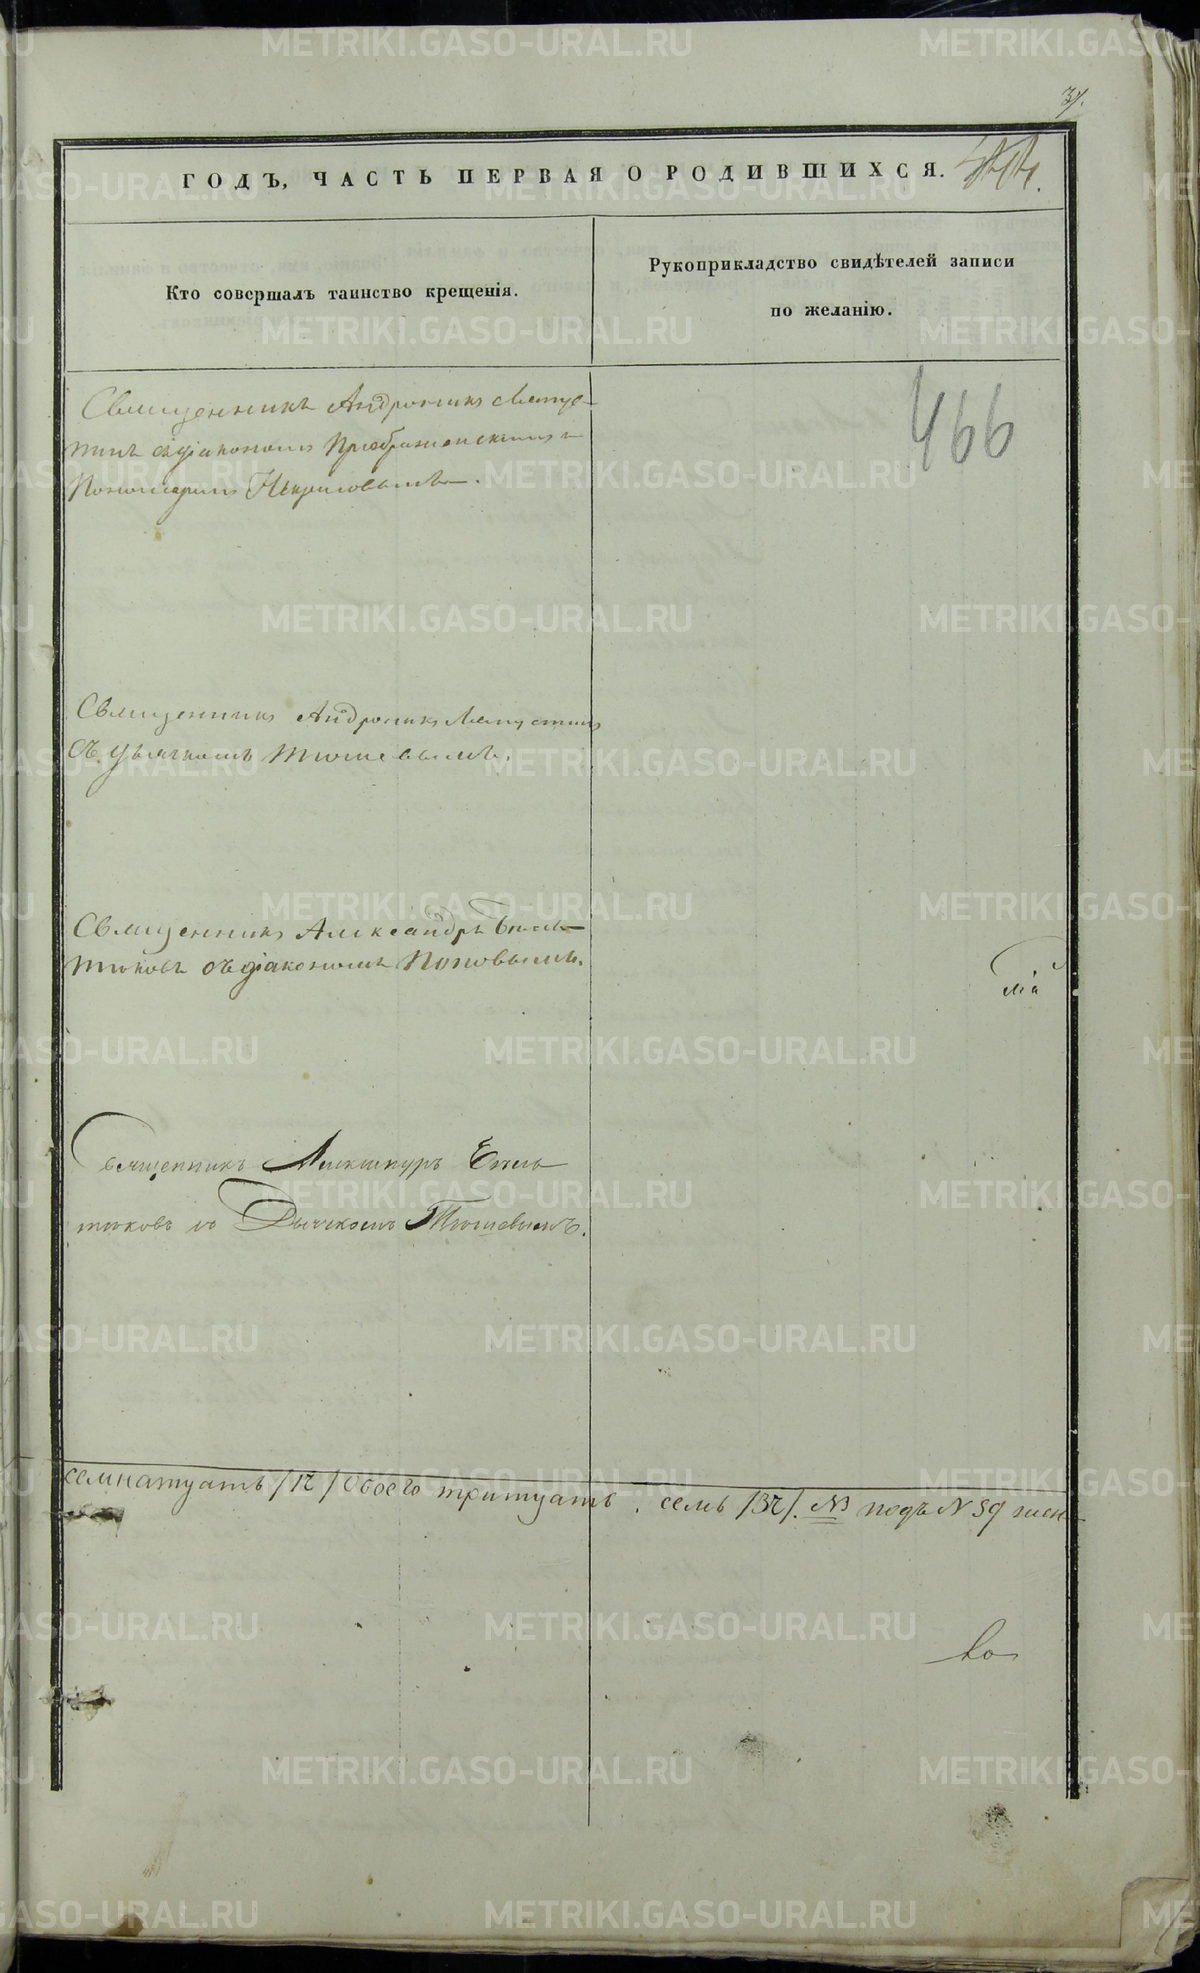 37.
ГОДЪ, ЧАСТЬ ПЕРВАЯ О РОДИВШИХСЯ.
Кто совершалъ таинство крещенія.
Рукоприкладство свидѣтелей записи
по желанію.
466
Священникъ Андроникъ Лапус-
тинъ съ діакономъ Преображенскимъ и
Пономаремъ Некрасовымъ.
Священникъ Андроникъ Лапустинъ
съ Дьячкомъ Тюшевымъ.
Священникъ Александръ
съ діакономъ Поповымъ.
Священникъ
Дьячкомъ Тюшевымъ.
семнатцать /17/ Обоего тритцать семь /37/. NB подъ N 39 жен-
ко
METRIKI.GASO-URAL.RU